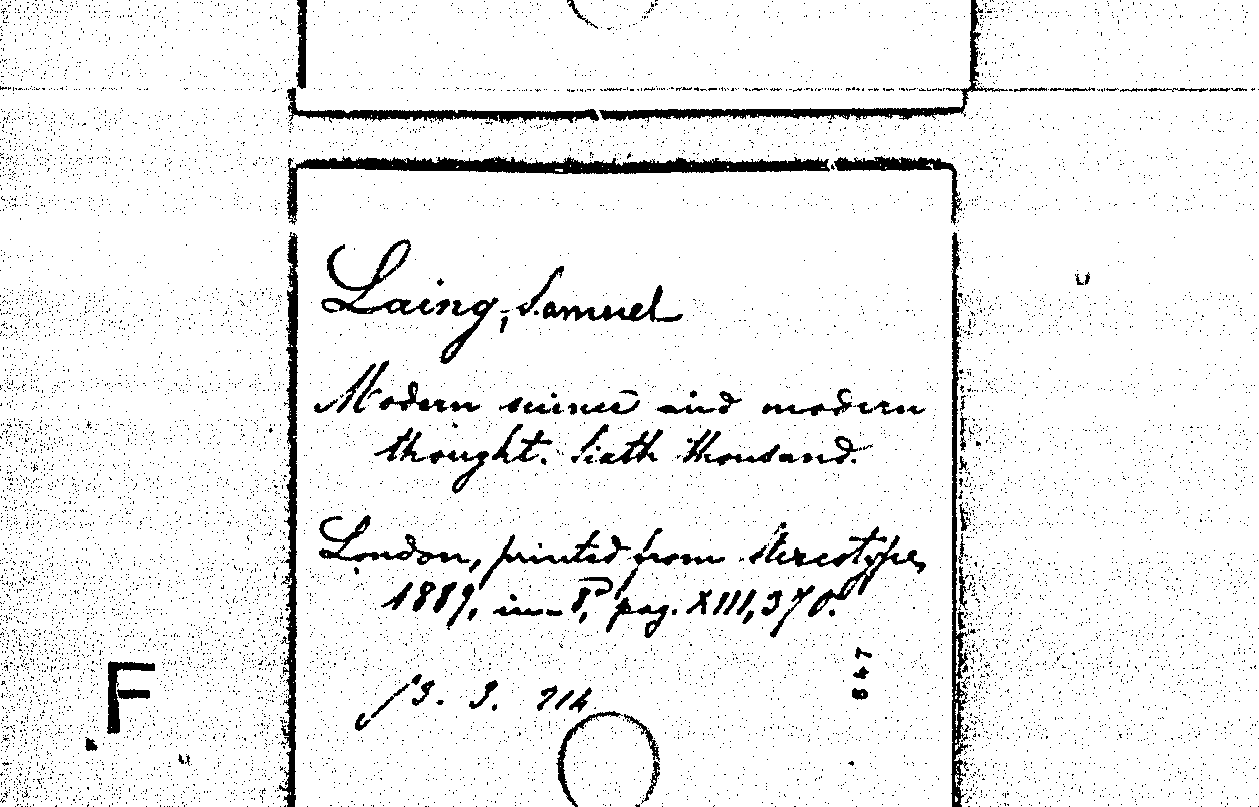 Laing, Samuel
Modern science and modern
thought. Sixth thousand.
London, printed from stereotype,
1889, in-8º, pag. XIII, 370.
647
F